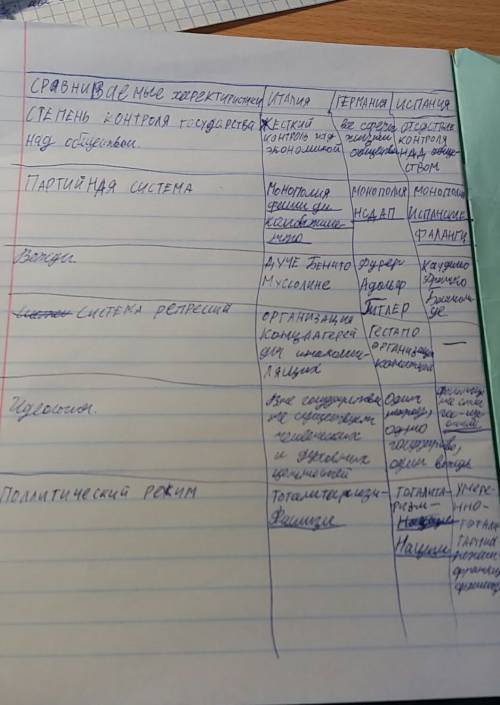 СРАВНИВАЕМЫЕ характеристики ИТАЛИЯ ГЕРМАНИЯ ИСПАНИЯ
СТЕПЕНЬ КОНТРОЛЯ ГОСУДАРСТВА
над обществом
ЖЕСТКИЙ
КОНТРОЛЬ НАД
ЭКОНОМИКОЙ
все сферы
жизни
общества
отсутствие
КОНТРОЛЯ
НАД ОБЩЕ-
СТВОМ
ПАРТИЙНАЯ СИСТЕМА
Монополия
фашии ди
комбатимен-
то
МОНОПОЛИЯ
НСДАП
МОНОПОЛИЯ
ИСПАНСКИЕ
ФАЛАНГИ
Вожди
ДУЧЕ БЕНИТО
Муссолине
Фюрер
Адольф
Гитлер
Каудильо
Франко
СИСТЕМА РЕПРЕСИЙ
ОРГАНИЗАЦИЯ
Концлагерей
для инакомыс-
лящих
ГЕСТАПО
организация
концлагерей
—
Идеология.
Вне государства
не существует
человеческих
и духовных
ценностей
Один
народ,
одно
государство,
один вождь
ПОЛЛИТИЧЕСКИЙ РЕЖИМ
Тоталитаризм-
Фашизм
ТОТАЛИТА-
РИЗМ-
Нацизм
УМЕРЕ-
ННО-
ТОТАЛИ-
ТАРНЫЙ
режим